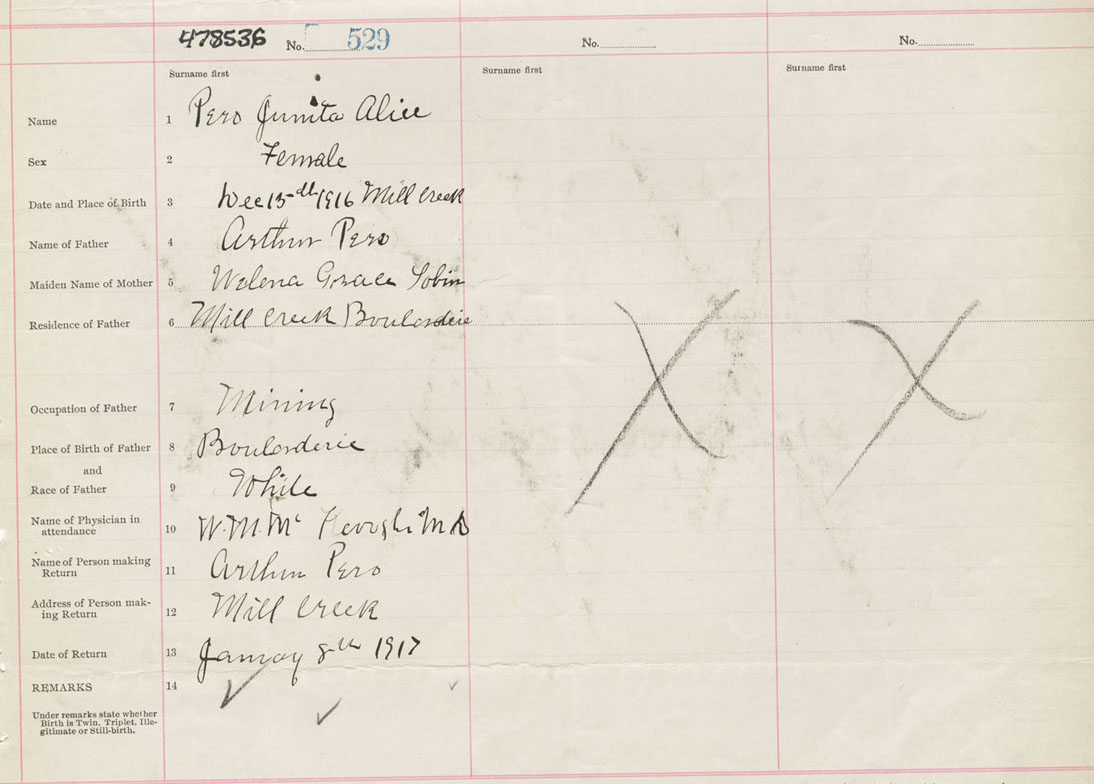 478536 No. 529 No. No.
Surname first Surname first Surname first
Name 1 Pero Junita Alice
Sex 2 Female
Date and Place of Birth 3 Dec 15th 1916 Mill Creek
Name of Father 4 Arthur Pero
Maiden Name of Mother 5 Welena Grace Tobin
Residence of Father 6 Mill Creek Boularderie
Occupation of Father 7 Mining
Place of Birth of Father 8 Boularderie
and
Race of Father 9 White
Name of Physician in
attendance 10 W. M. Mc M D
Name of Person making
Return 11 Arthur Pero
Address of Person mak-
ing Return 12 Mill Creek
Date of Return 13 Januay 8th 1917
REMARKS 14
Under remarks state whether
Birth is Twin, Triplet, Ille-
gitimate or Still-birth.